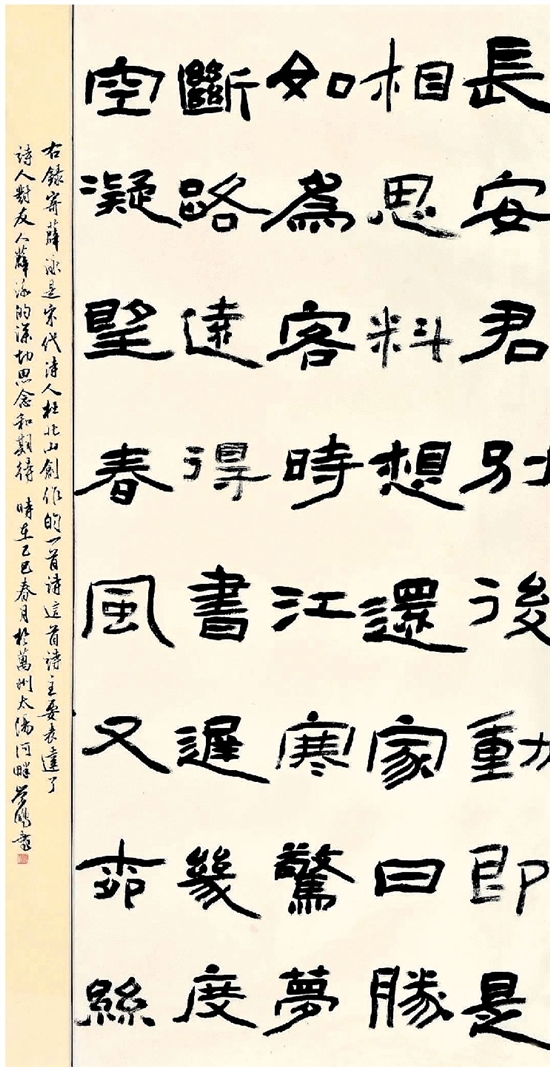 長安君別後動即是
相思料想還家日勝
如爲客時江寒驚夢
斷路遠得書遲幾度
空凝望春風又柳絲
右錄寄薛泳是宋代詩人杜北山創作的一首詩這首詩主要表達了
詩人對友人薛泳的深切思念和期待 時在乙巳春月於萬洲太陽河畔 書